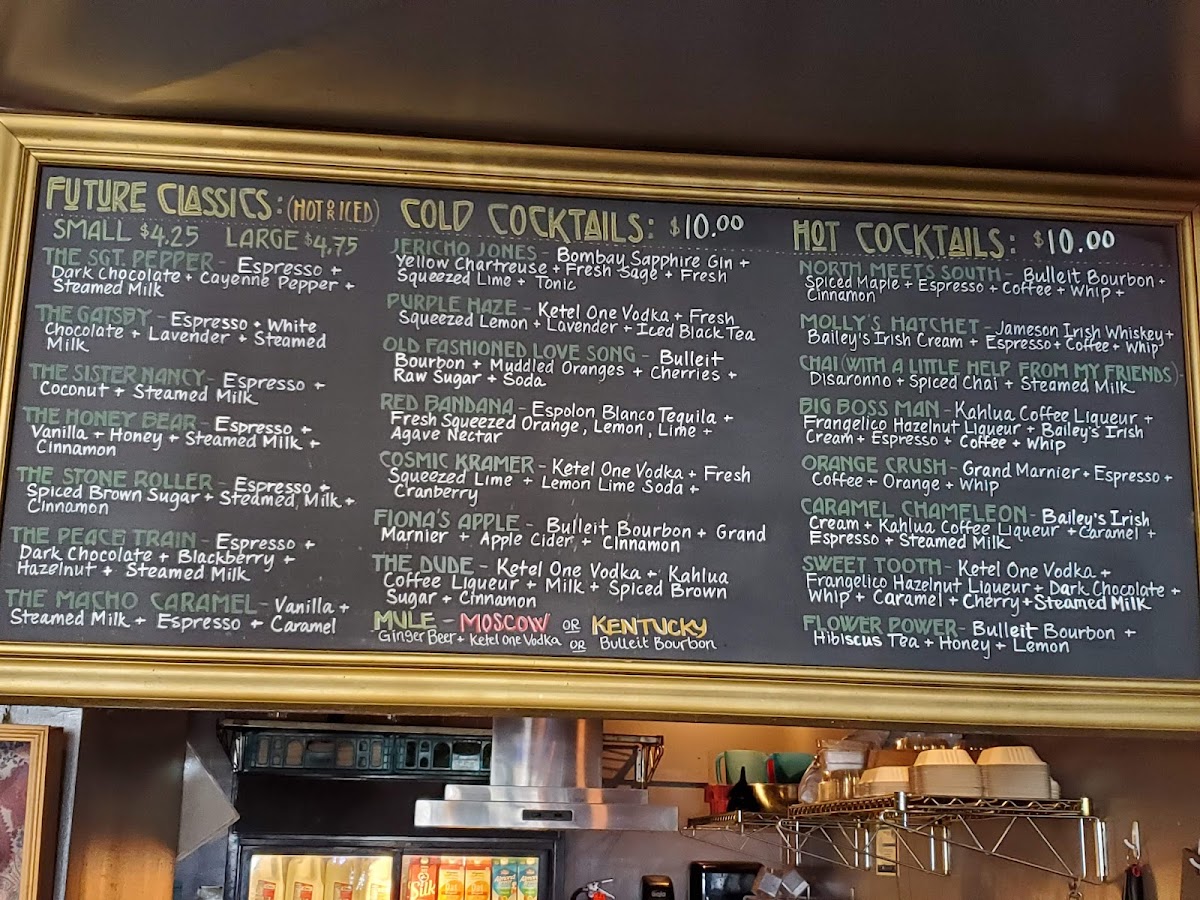 FUTURE CLASSICS: (HOT OR ICED)
SMALL $4.25 LARGE $4.75
THE SGT. PEPPER - Espresso +
Dark Chocolate + Cayenne Pepper +
Steamed Milk
THE GATSBY - Espresso + White
Chocolate + Lavender + Steamed
Milk
THE SISTER NANCY - Espresso +
Coconut + Steamed Milk
THE HONEY BEAR - Espresso +
Vanilla + Honey + Steamed Milk +
Cinnamon
THE STONE ROLLER - Espresso +
Spiced Brown Sugar + Steamed Milk +
Cinnamon
THE PEACE TRAIN - Espresso +
Dark Chocolate + Blackberry +
Hazelnut + Steamed Milk
THE MACHO CARAMEL - Vanilla +
Steamed Milk + Espresso + Caramel
COLD COCKTAILS: $10.00
JERICHO JONES - Bombay Sapphire Gin +
Yellow Chartreuse + Fresh Sage + Fresh
Squeezed Lime + Tonic
PURPLE HAZE - Ketel One Vodka + Fresh
Squeezed Lemon + Lavender + Iced Black Tea
OLD FASHIONED LOVE SONG - Bulleit
Bourbon + Muddled Oranges + Cherries +
Raw Sugar + Soda
RED BANDANA - Espolon Blanco Tequila +
Fresh Squeezed Orange, Lemon, Lime +
Agave Nectar
COSMIC KRAMER - Ketel One Vodka + Fresh
Squeezed Lime + Lemon Lime Soda +
Cranberry
FIONA'S APPLE - Bulleit Bourbon + Grand
Marnier + Apple Cider + Cinnamon
THE DUDE - Ketel One Vodka + Kahlua
Coffee Liqueur + Milk + Spiced Brown
Sugar + Cinnamon
MULE - MOSCOW OR KENTUCKY
Ginger Beer + Ketel One Vodka OR Bulleit Bourbon
HOT COCKTAILS: $10.00
NORTH MEETS SOUTH - Bulleit Bourbon +
Spiced Maple + Espresso + Coffee + Whip +
Cinnamon
MOLLY'S HATCHET - Jameson Irish Whiskey +
Bailey's Irish Cream + Espresso + Coffee + Whip
CHAI (WITH A LITTLE HELP FROM MY FRIENDS) -
Disaronno + Spiced Chai + Steamed Milk
BIG BOSS MAN - Kahlua Coffee Liqueur +
Frangelico Hazelnut Liqueur + Bailey's Irish
Cream + Espresso + Coffee + Whip
ORANGE CRUSH - Grand Marnier + Espresso +
Coffee + Orange + Whip
CARAMEL CHAMELEON - Bailey's Irish
Cream + Kahlua Coffee Liqueur + Caramel +
Espresso + Steamed Milk
SWEET TOOTH - Ketel One Vodka +
Frangelico Hazelnut Liqueur + Dark Chocolate +
Whip + Caramel + Cherry + Steamed Milk
FLOWER POWER - Bulleit Bourbon +
Hibiscus Tea + Honey + Lemon
Silk